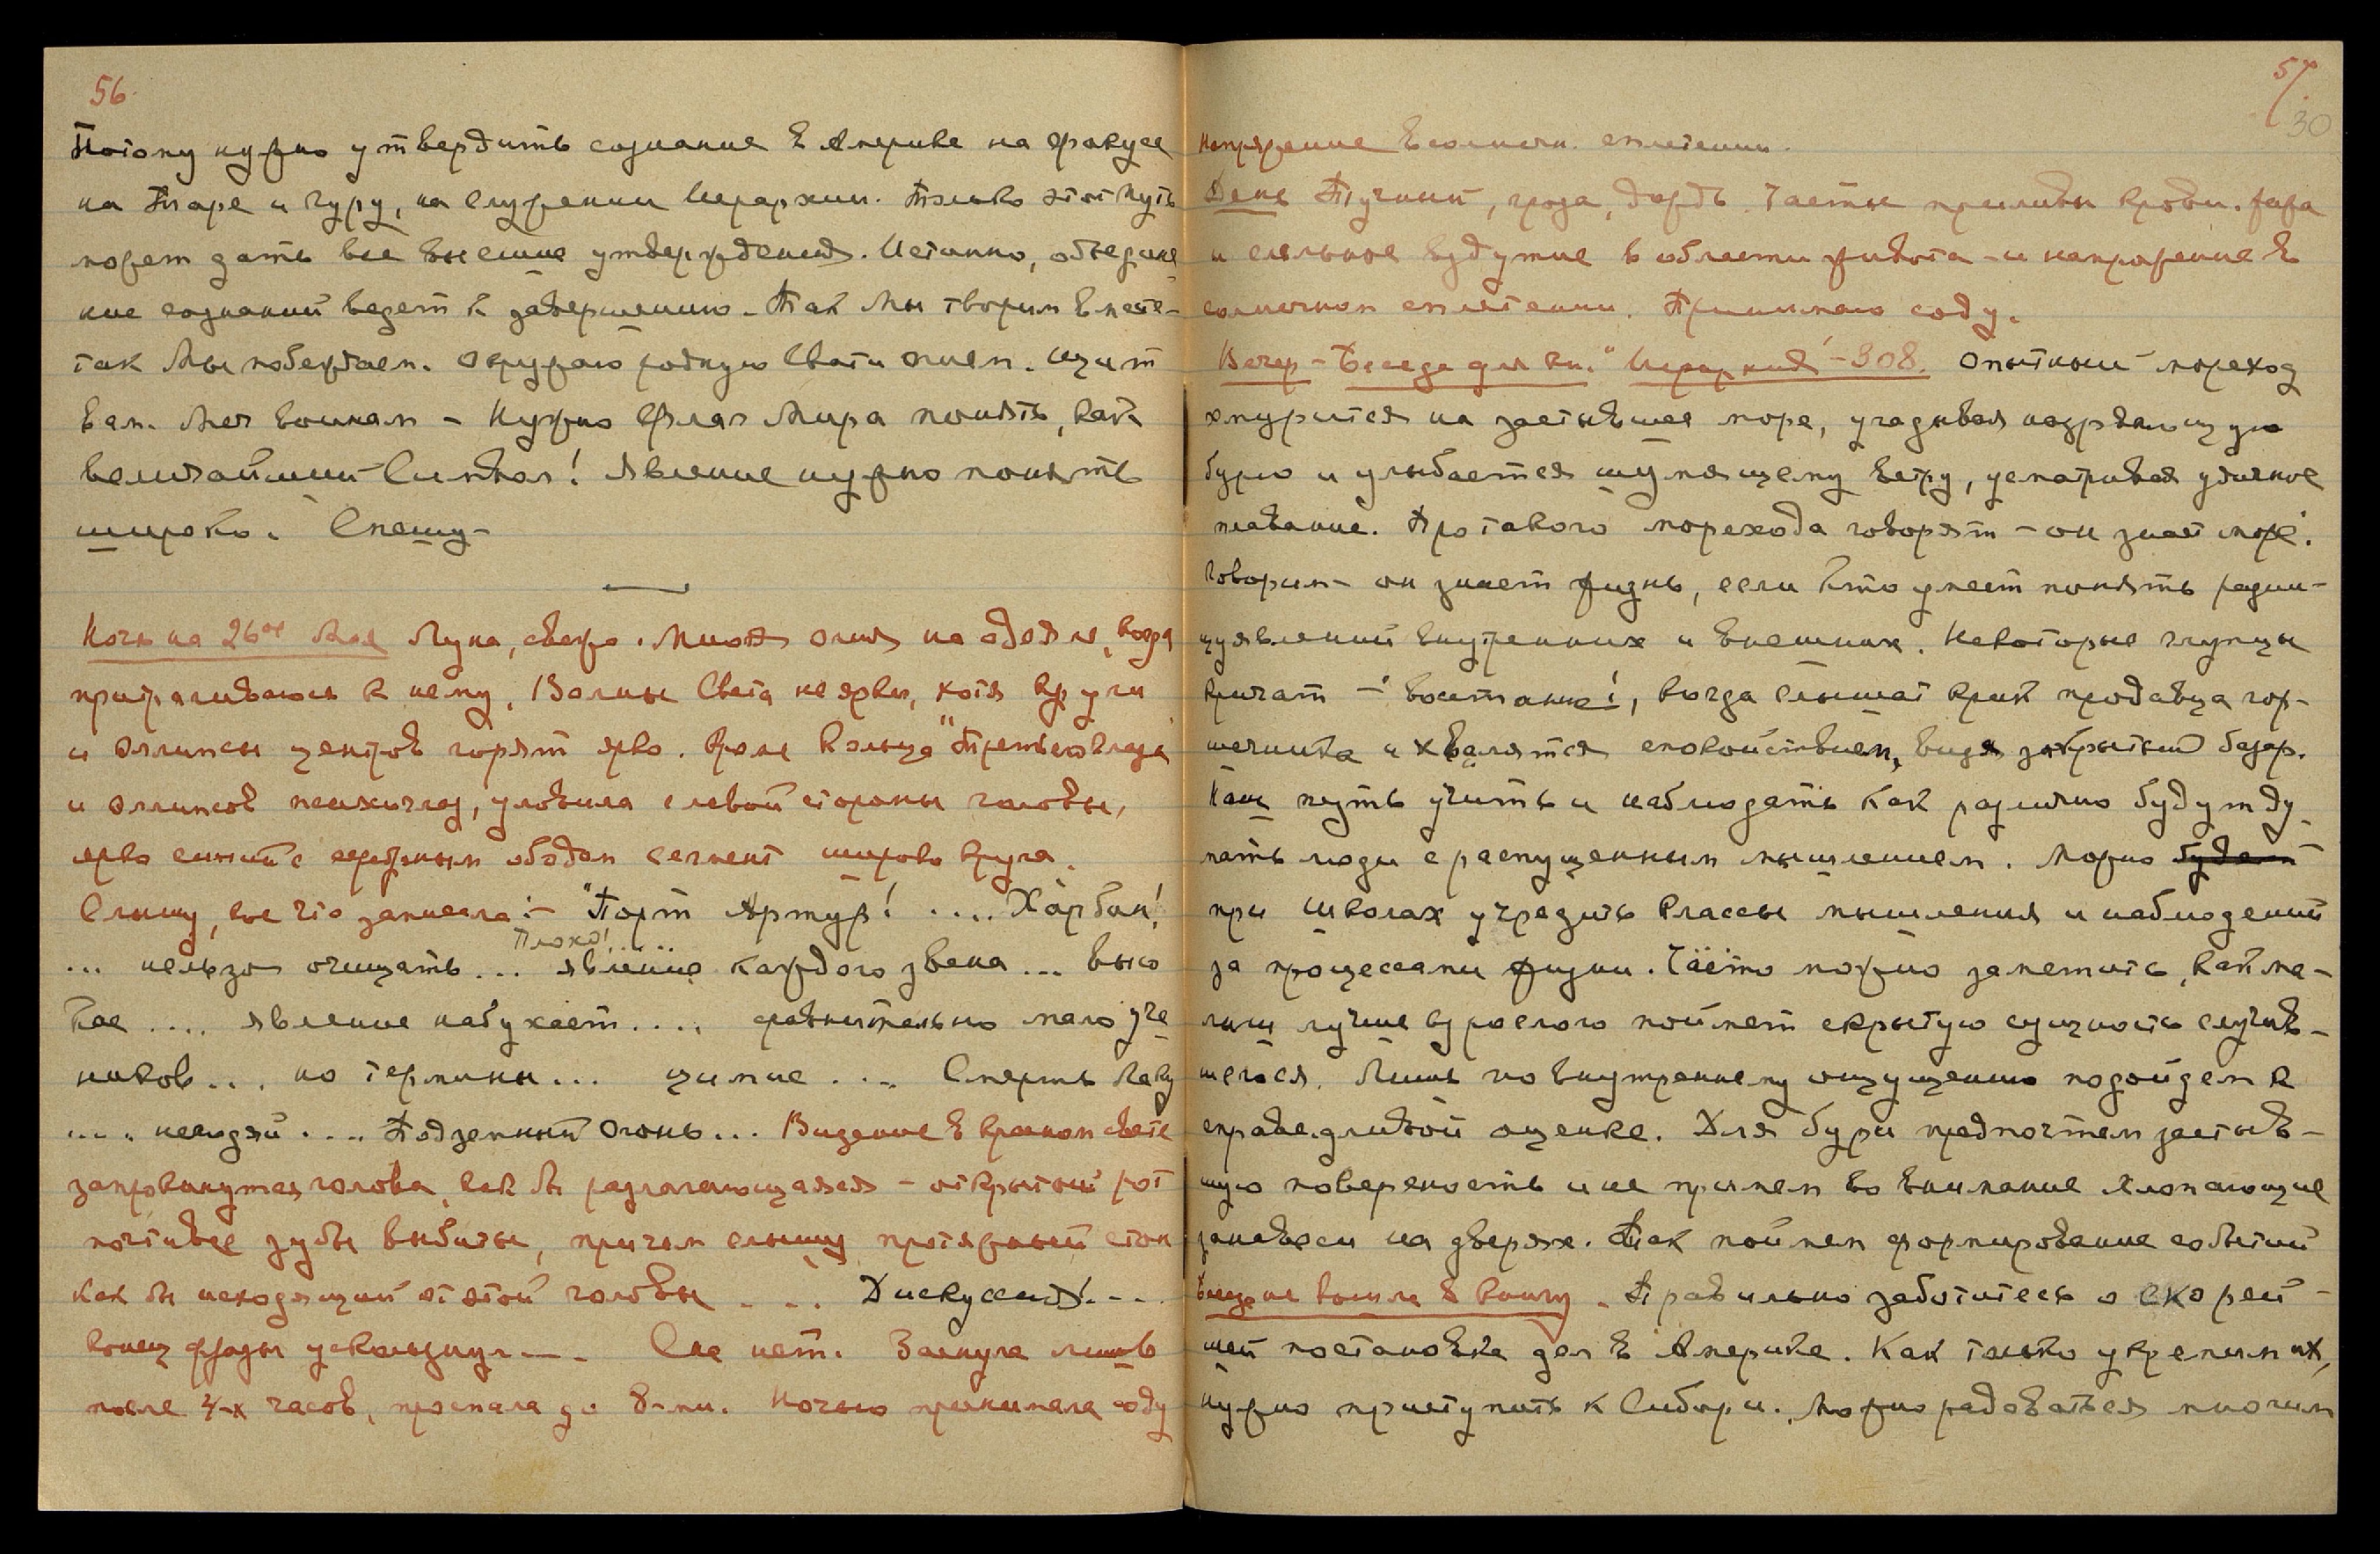 56
Потому нужно утвердить сознание в Америке на фокусе
на Таре и Гуру, на служении Иерархии. Только этот путь
может дать все высшие утверждения. Истинно, объедине
ние сознаний ведет к завершению. Так Мы творим вместе-
так Мы побеждаем. Окружаю родную Свати огнем. Щит
вам. Меч воинам - Нужно Флаг Мира понять, как
величайший Символ! Явление нужно понять
широко. Спешу-
Ночь на 26ое Мая Луна, свежо. Много огня на одеяле, когда
притрагиваюсь к нему. Волны Света не ярки, хотя круги
и эллипсы центров горят ярко. Кроме кольца "Третьего глаза"
и эллипсов, уловила с левой стороны головы,
ярко синий с серебряным ободом сегмент широкого круга.
Слышу, вот что записала:- "Порт Артур! .... Харбин!
Плохо!.....
... нельзя очищать... явление каждого звена... высо
кое .... явление набухает.... сравнительно мало уче
ников... но термины... ... Смерть
.... негодяй.... Подземный Огонь... Видение в красном свете
запрокинутая голова, как бы разлагающаяся - открытый рот
почти все зубы выбиты, причем слышу протяжный стон
как бы исходящий от этой головы .... Дискуссия!...
конец фразы ускользнул... Сна нет. Заснула лишь
после 4-х часов, проспала до 8-ми. Ночью принимала соду
57
30
Напряжение в солнечн. сплетении.
День Тучный, гроза, дождь. Частые приливы крови. жара
и сильное вздутие в области живота - и напряжение в
солнечном сплетении. Принимаю соду.
Вечер - Беседа для кн. "Иерархия" - 308. Опытный мореход
хмурится на застывшее море, угадывая назревающую
бурю и улыбается шумящему ветру, усматривая удачное
плавание. Про такого морехода говорят - он знает море.
Говорим - он знает жизнь, если кто умеет понять разни-
цу явлений внутренних и внешних. Некоторые глупцы
кричат - восстание!, когда слышат крик продавца гор-
шечника и хвалятся спокойствием, видя закрытый базар.
Наш путь учить и наблюдать как различно будут ду
мать люди с распущенным мышлением. Можно будет
при школах учредить классы мышления и наблюдений
за процессами жизни. Часто можно заметить, как ма-
лыш лучше взрослого поймет скрытую сущность случив-
шегося. Лишь по внутреннему ощущению подойдем к
справедливой оценке. Для бури предпочтем застыв-
шую поверхность и не примем во внимание хлопающие
занавеси на дверях. Так поймем формирование событий
Беседа не вошла в книгу. Правильно заботитесь о скорей-
шей постановке дел в Америке. Как только укрепим их,
нужно приступить к Сибири. Можно радоваться многим